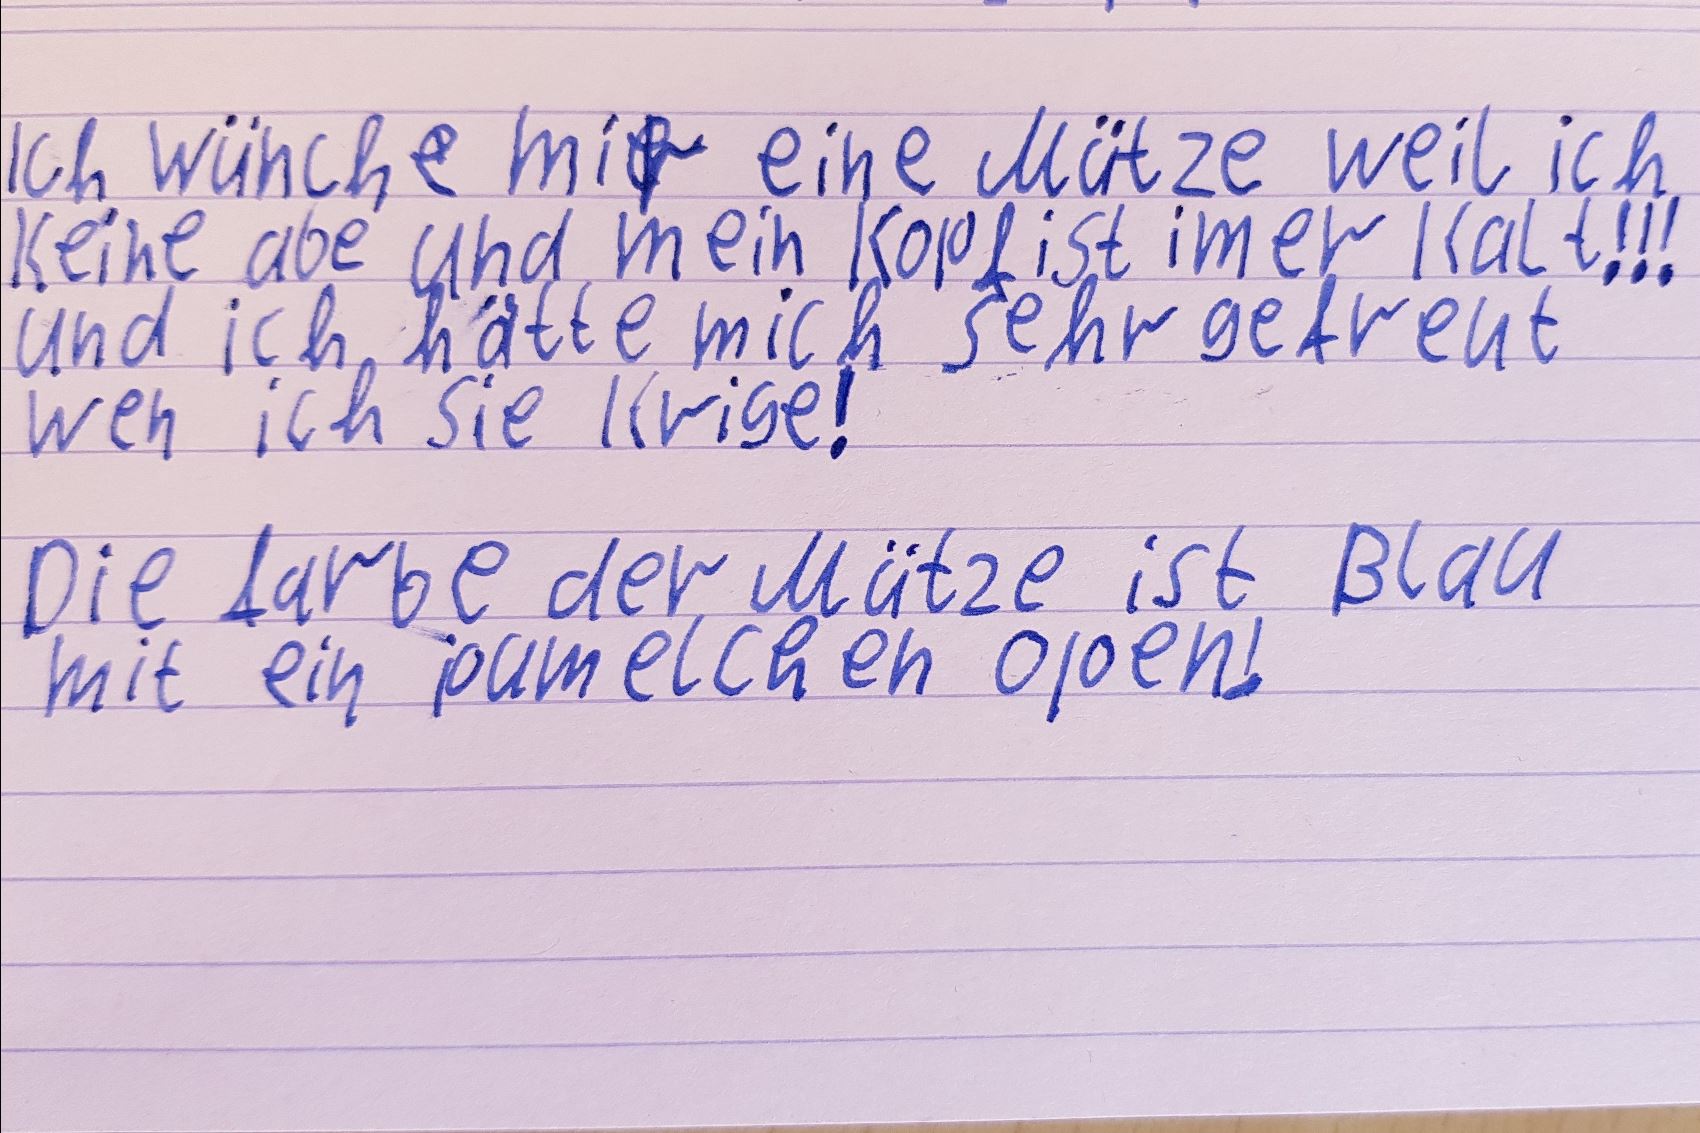 Ich wünche mir eine Mütze weil ich
keine abe und mein Kopf ist imer Kalt!!!
und ich hätte mich sehr gefreut
wen ich sie krige!
Die farbe der Mütze ist Blau
mit ein pumelchen open!